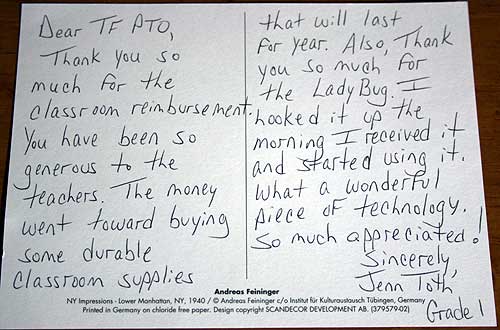 Dear TF PTO,
Thank you so
much for the
classroom reimbursement.
You have been so
generous to the
teachers. The money
went toward buying
some durable
classroom supplies
that will last
for year. Also, Thank
you so much for
the LadyBug. I
hooked it up the
morning I received it
and started using it.
What a wonderful
piece of technology.
So much appreciated!
Sincerely,
Jenn Toth
Grade 1
Andreas Feininger
NY Impressions - Lower Manhattan, NY, 1940 / © Andreas Feininger c/o Institut für Kulturaustausch Tübingen, Germany
Printed in Germany on chloride free paper. Design copyright SCANDECOR DEVELOPMENT AB. (379579-02)